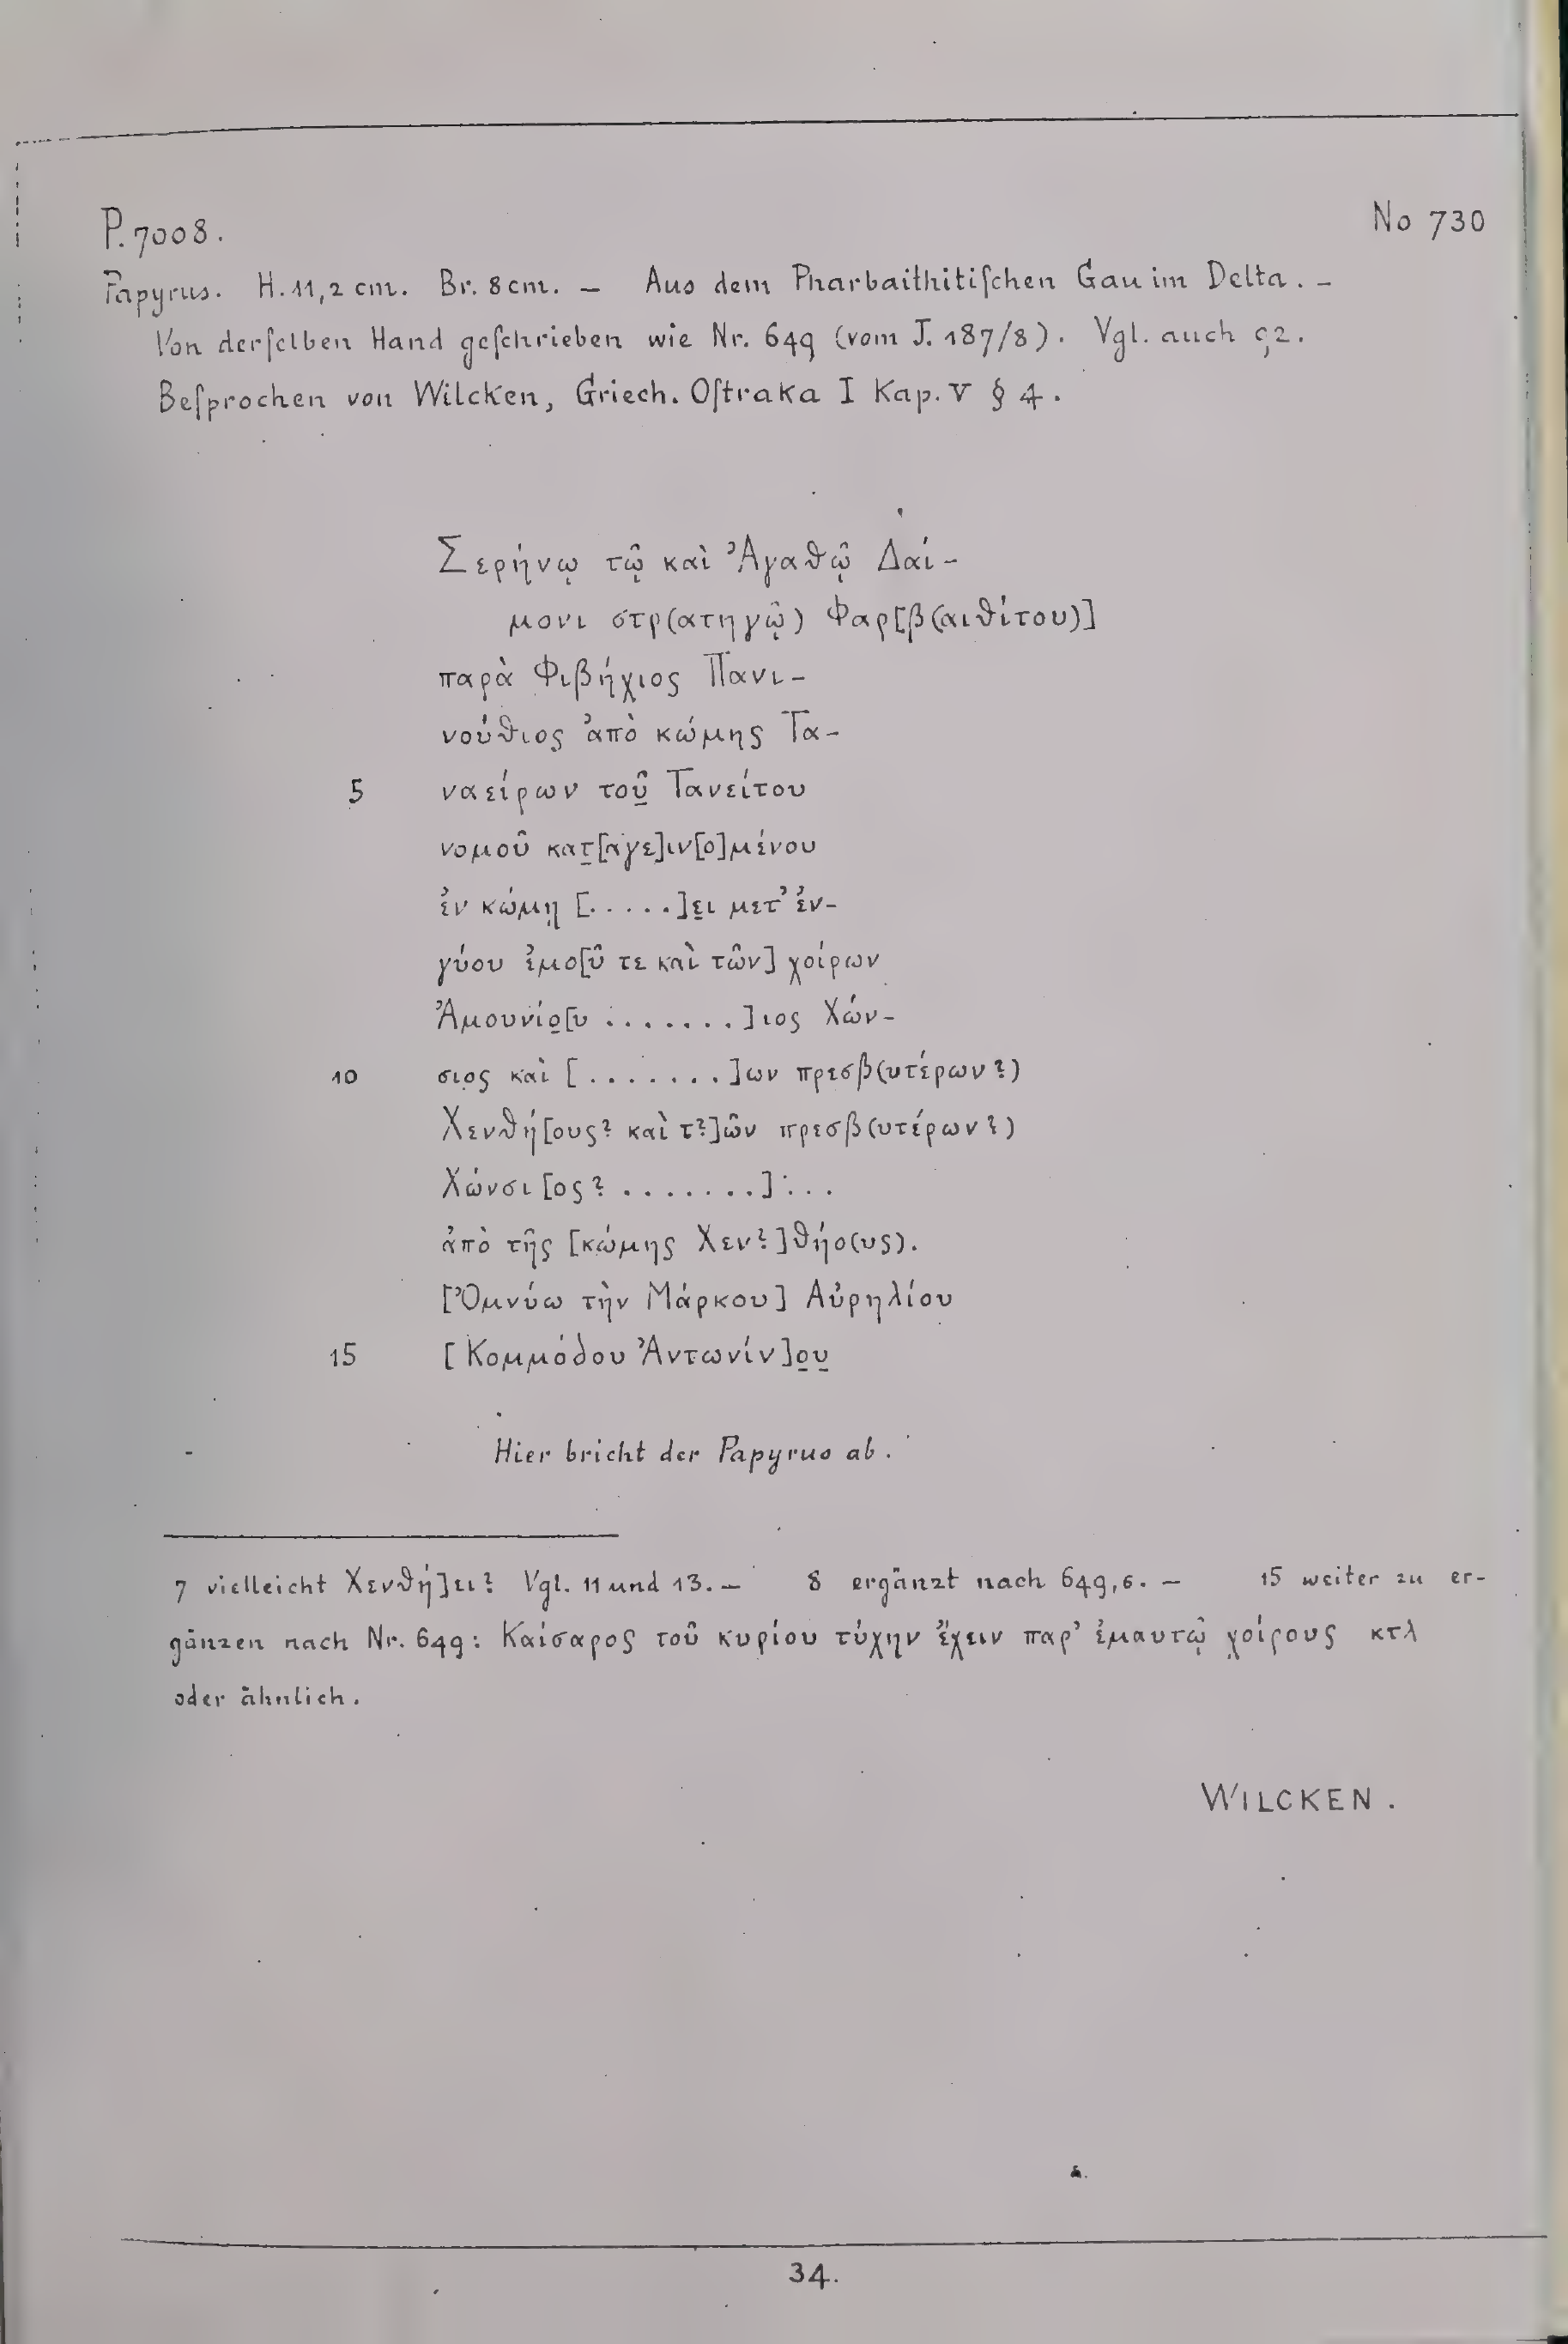 P. 7008.
No 730
Papyrus. H. 11,2 cm. Br. 8 cm. — Aus dem Pharbaithitiſchen Gau im Delta. —
Von derſelben Hand geſchrieben wie Nr. 649 (vom J. 187/8). Vgl. auch 92.
Beſprochen von Wilcken, Griech. Oſtraka I Kap. V § 4.
Σερήνῳ τῷ καὶ Ἀγαθῷ Δαί-
μονι στρ(ατηγῷ) Φαρ[β(αιθίτου)]
παρὰ Φιβήχιος Πανι-
νούθιος ἀπὸ κώμης Τα-
5 ναείρων τοῦ̲ Τανείτου
νομοῦ κατ̲[αγε]ιν[ο]μένου
ἐν κώμῃ [.....]ε̲ι μετ' ἐν-
γύου ἐμο[ῦ τε καὶ τῶν] χοίρων
Ἀμουνίο̲[υ .......]ιος Χών-
10 σιος καὶ [.......]ων πρεσβ(υτέρων?)
Χενθή[ους? καὶ τ?]ῶν πρεσβ(υτέρων?)
Χώνσι[ος? .......]....
ἀπὸ τῆς [κώμης Χεν?]θήο(υς).
[Ὀμνύω τὴν Μάρκου] Αὐρηλίου
15 [Κομμόδου Ἀντωνίν]ο̲υ̲
Hier bricht der Papyrus ab.
7 vielleicht Χενθή]ει? Vgl. 11 und 13. — 8 ergänzt nach 649,6. — 15 weiter zu er-
gänzen nach Nr. 649: Καίσαρος τοῦ κυρίου τύχην ἔχειν παρ' ἐμαυτῷ χοίρους κτλ
oder ähnlich.
WILCKEN.
34.